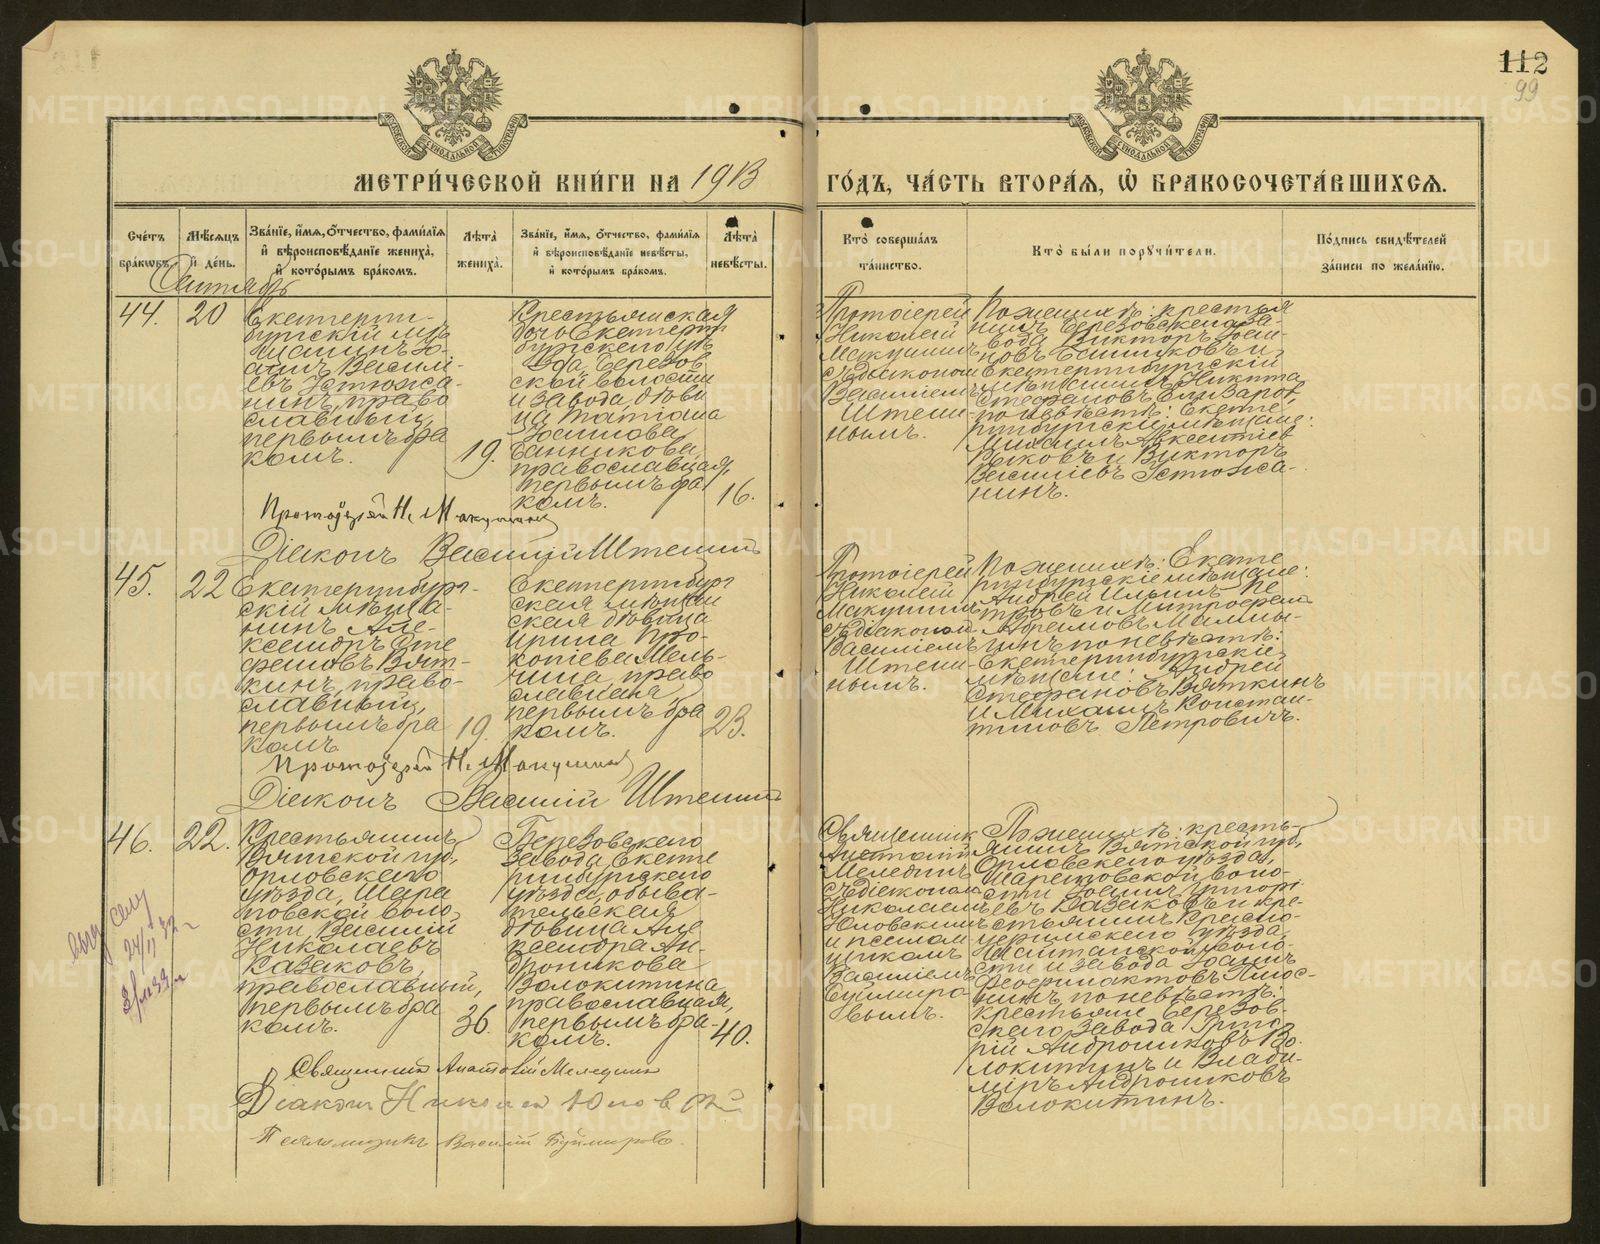 112
99
МЕТРИ́ЧЕСКОЙ КНИ́ГИ НА 1913 ГО́ДЪ, ЧА́СТЬ ВТОРА́Я, Ѡ БРАКОСОЧЕТА́ВШИХСЯ.
Сче́тъ бра́кѡвъ.
Мѣ́сяцъ и́ де́нь.
Зва́нїе, и́мя, ѻ́тчество, фами́лїя и́ вѣроисповѣ́данїе жениха̀, и́ кото́рымъ бра́комъ.
Лѣ́та жениха̀.
Зва́нїе, и́мя, ѻ́тчество, фами́лїя и́ вѣроисповѣ́данїе невѣ́сты, и́ кото́рымъ бра́комъ.
Лѣ́та невѣ́сты.
Кто̀ соверша́лъ та́инство.
Кто̀ бы́ли порꙋчи́тели.
По́дпись свидѣ́телей за́писи по жела́нїю.
Сентябрь
44.
20
Екатерин-
бургскій мѣ
щанинъ Іо-
аннъ Василі-
евъ Устюжа-
нинъ, право
славный,
первымъ бра
комъ.
19.
Крестьянская
дочь Екатерин
бургскаго уѣз
да, Березов
ской волости
и завода, дѣви
ца Татіана
Іоаннова
Банникова,
православная,
первымъ бра
комъ.
16.
Протоіерей
Николай
Макушинъ
съ діакономъ
Василіемъ
Штени-
нымъ.
По женихѣ: крестья
нинъ Березовскаго за-
вода Викторъ Іоан-
новъ Банниковъ и
Екатеринбургскій
мѣщанинъ Никита
Стефановъ Елизаров,
по невѣстѣ: Екате-
ринбургскіе мѣщане:
Михаилъ Авксентіев
Быковъ и Викторъ
Василіевъ Устюжа-
нинъ.
Протоіерей Н. Макушинъ
Діаконъ Василій Штенинъ
45.
22
Екатеринбург-
скій мѣща-
нинъ Але-
ксандръ Сте
фановъ Вят-
кинъ, право-
славный,
первымъ бра
комъ
19.
Екатеринбург
ская мѣщан
ская дѣвица
Ирина Про-
копіева Мель-
чина, право
славная,
первымъ бра
комъ.
23.
Протоіерей
Николай
Макушинъ
съ діакономъ
Василіемъ
Штени-
нымъ.
По женихѣ: Екате
ринбургскіе мѣщане:
Андрей Ильинъ Пе
тровъ и Митрофанъ
Ефремовъ Мамы-
гинъ, по невѣстѣ:
Екатеринбургскіе
мѣщане: Андрей
Стефановъ Вяткинъ
и Михаилъ Констан-
тиновъ Петровичъ.
Протоіерей Н. Макушинъ
Діаконъ Василій Штенинъ
46.
22.
Крестьянинъ
Вятской губ,
Орловскаго
уѣзда, Шара
товской воло
сти, Василій
Николаевъ
Казаковъ,
православный,
первымъ бра
комъ.
36.
Березовскаго
завода, Екате
ринбургскаго
уѣзда, обыва-
тельская
дѣвица Але
ксандра Ан-
дроникова
Волокитина,
православная,
первымъ бра-
комъ.
40.
Священникъ
Анатолій
Мелединъ
съ діакономъ
Николаемъ
Юловскимъ
и псалом-
щикомъ
Василіемъ
Буймиро-
вымъ.
По женихѣ: кресть-
янинъ Вятской губ,
Орловскаго уѣзда,
Шаратовской воло-
сти Іоаннъ Григорі
евъ Казаковъ и кре-
стьянинъ Красно-
уфимскаго уѣзда,
Шайтанской воло-
сти и завода Іоаннъ
Феофилактовъ Плюс-
нинъ, по невѣстѣ:
крестьяне Березов-
скаго завода Григо
рій Андрониковъ Во-
локитинъ и Влади-
міръ Андрониковъ
Волокитинъ.
Священникъ Анатолій Меледин
Діаконъ Николай Юловскій
Псаломщикъ Василій Буймировъ.
METRIKI.GASO-URAL.RU